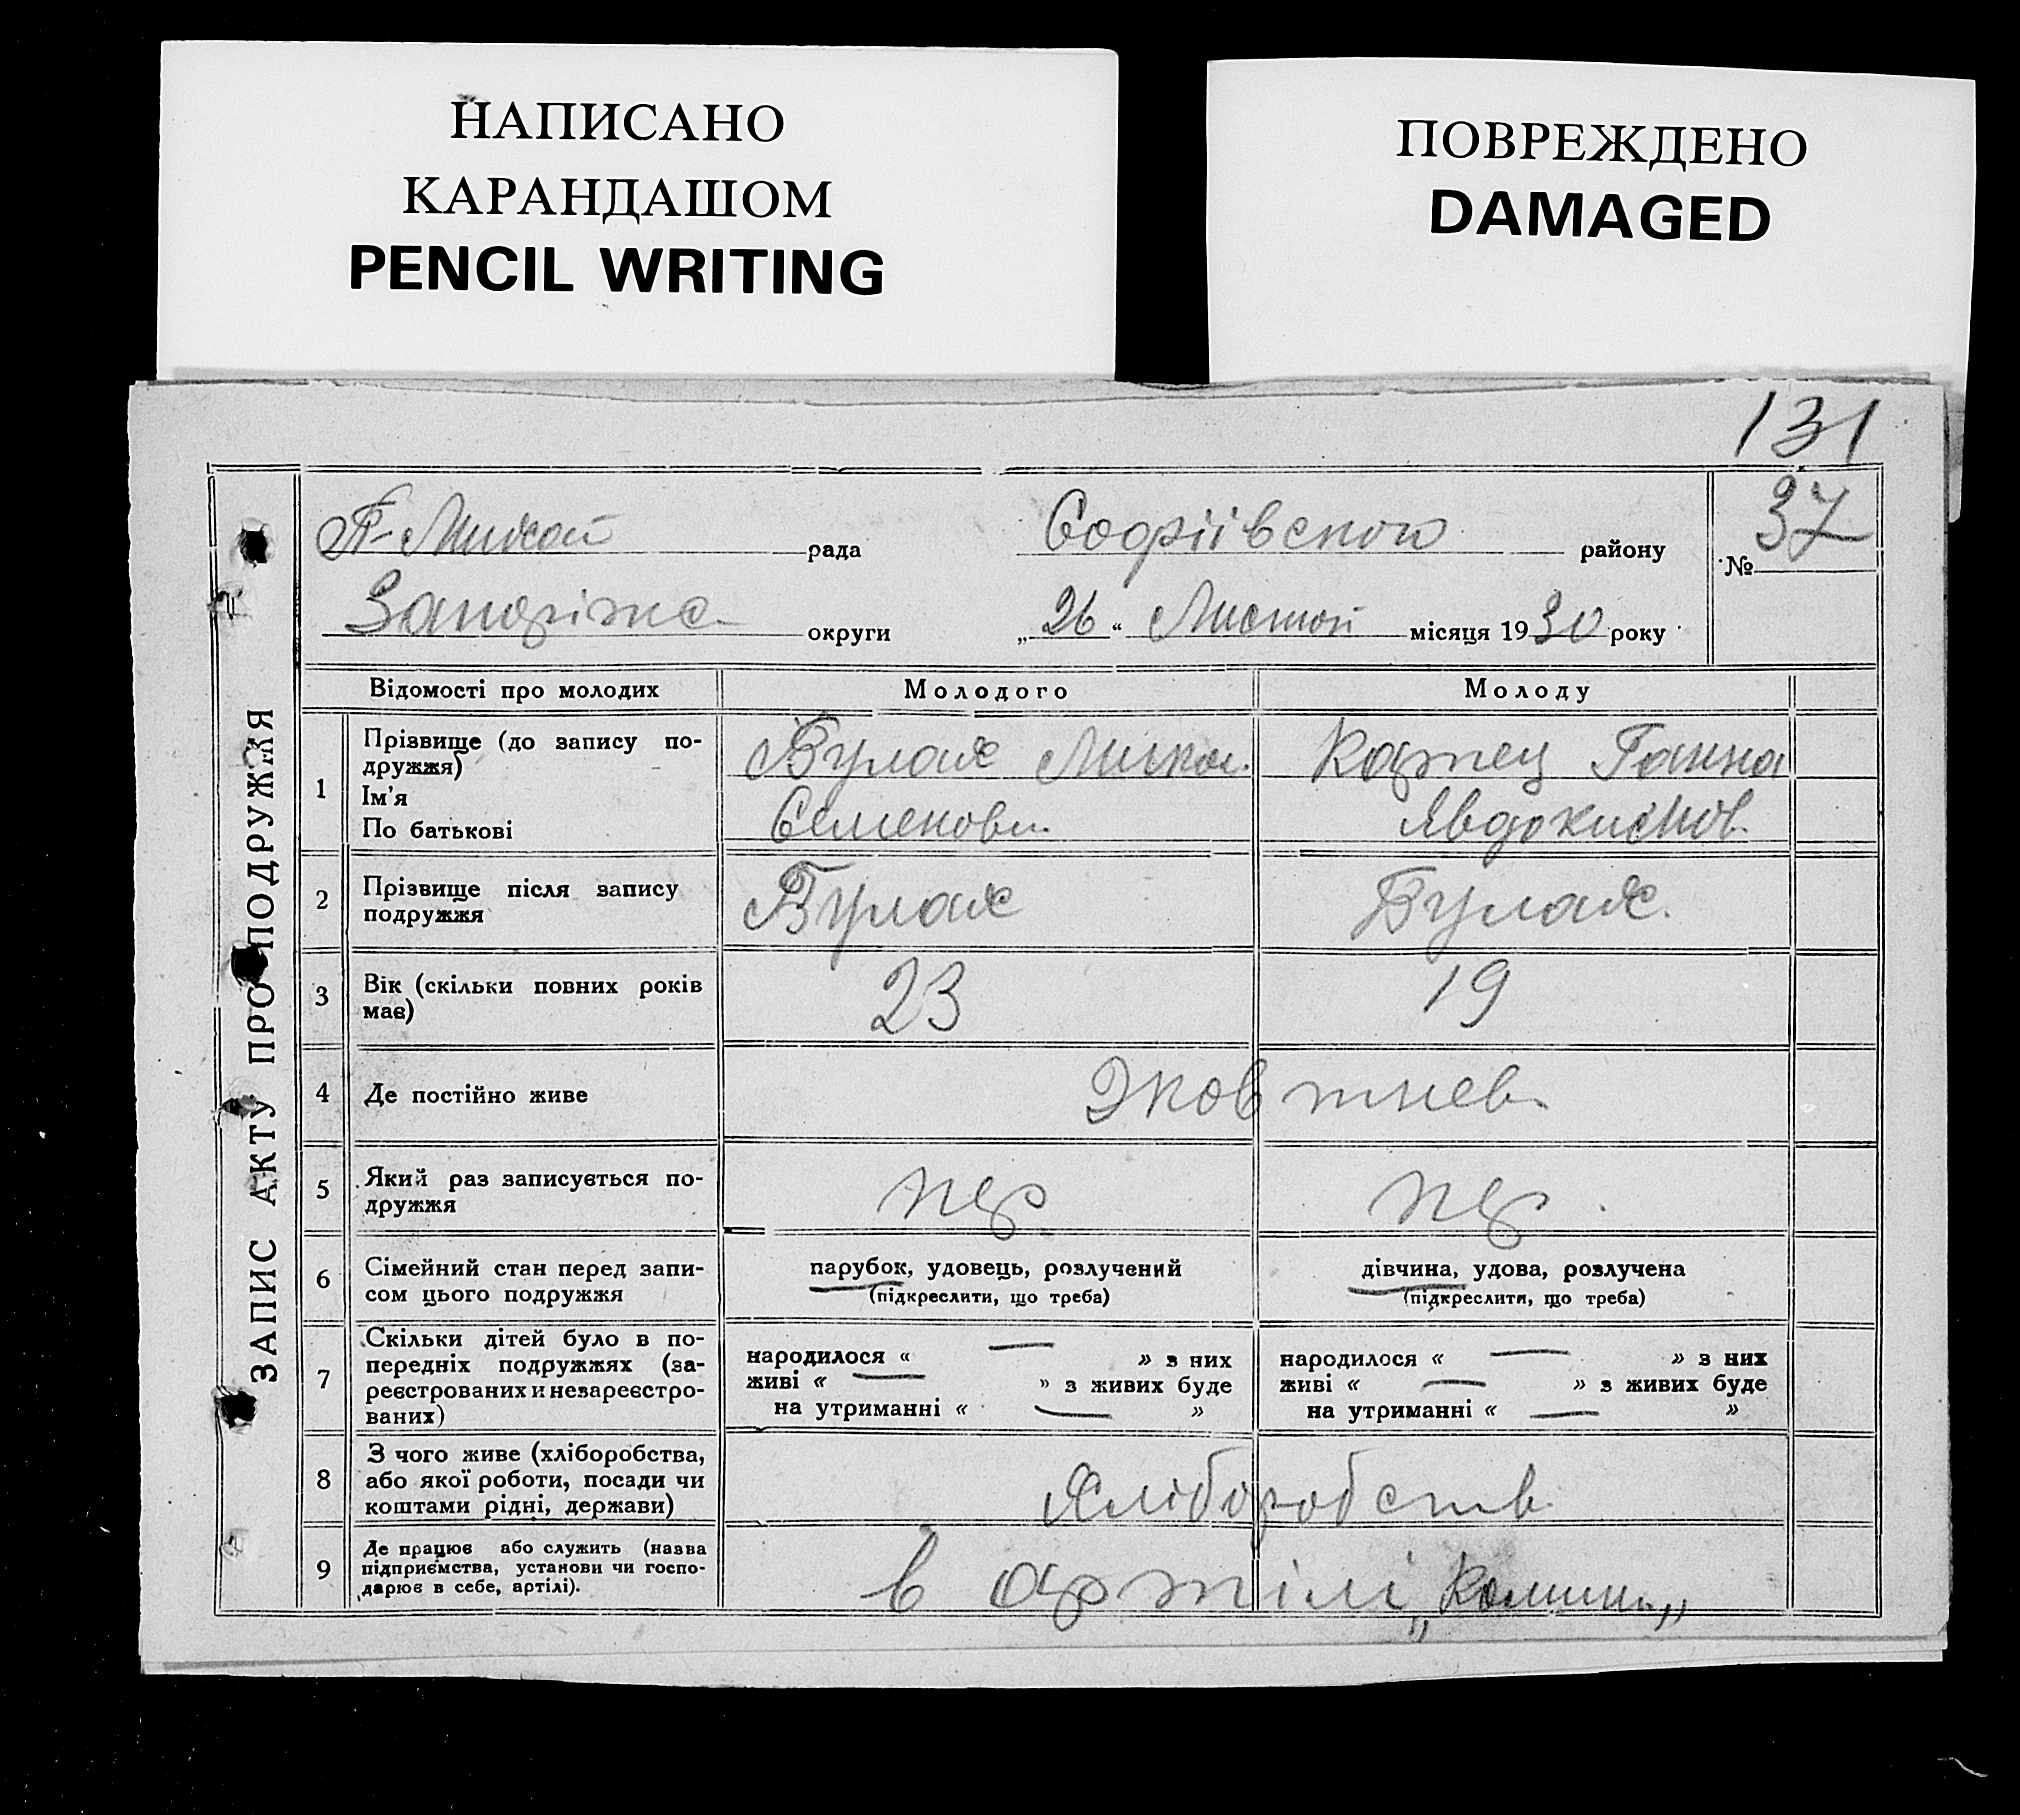 НАПИСАНО
КАРАНДАШОМ
PENCIL WRITING
ПОВРЕЖДЕНО
DAMAGED
131
ЗАПИС АКТУ ПРО ПОДРУЖЖЯ
рада Софіївського району № 37
Запоріжс- округи „26“ Листоп місяця 1930 року
Відомості про молодих Молодого Молоду
1 Прізвище (до запису по-
дружжя)
Ім'я
По батькові
Булах Микол. Ганна
Семенов.
2 Прізвище після запису
подружжя
Булах Булах.
3 Вік (скільки повних років
має)
23 19
4 Де постійно живе
Жовтнев.
5 Який раз записується по-
дружжя
пер. пер.
6 Сімейний стан перед запи-
сом цього подружжя
парубок, удовець, розлучений
(підкреслити, що треба)
дівчина, удова, розлучена
(підкреслити, що треба)
7 Скільки дітей було в по-
передніх подружжях (за-
реєстрованих и незареєстро-
ваних)
народилося « — » з них
живі « — » з живих буде
на утриманні « — »
народилося « — » з них
живі « — » з живих буде
на утриманні « — »
8 З чого живе (хліборобства,
або якої роботи, посади чи
коштами рідні, держави)
Хліборобств.
9 Де працює або служить (назва
підприємства, установи чи госпо-
дарює в себе, артілі).
в артілі